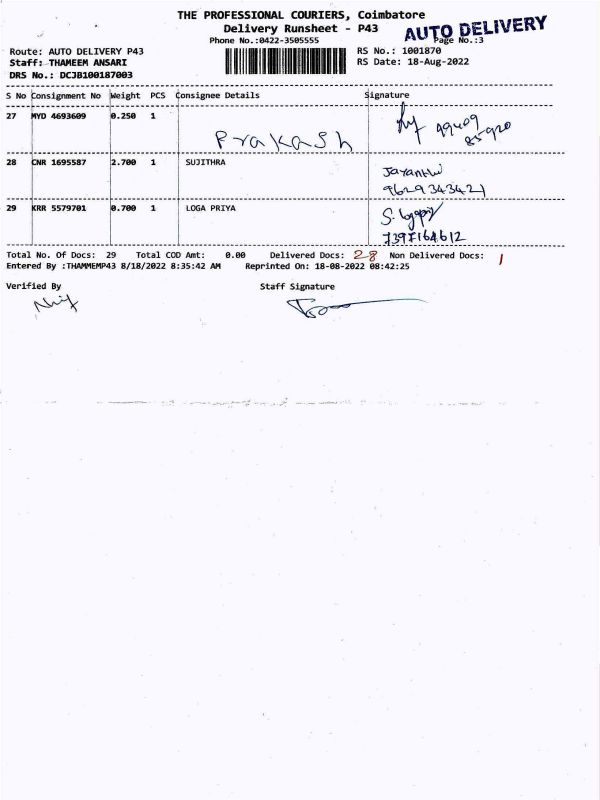 THE PROFESSIONAL COURIERS, Coimbatore
Delivery Runsheet - P43
AUTO DELIVERY
Phone No.:0422-3505555
Page No.:3
Route: AUTO DELIVERY P43
RS No.: 1001870
Staff: THAMEEM ANSARI
RS Date: 18-Aug-2022
DRS No.: DCJB100187003
S No Consignment No Weight PCS Consignee Details Signature
27 MYD 4693609 0.250 1
Prakash
99409
85920
28 CNR 1695587 2.700 1 SUJITHRA
Jayanthi
9629343421
29 KRR 5579701 0.700 1 LOGA PRIYA
7397164612
Total No. Of Docs: 29 Total COD Amt: 0.00 Delivered Docs: 28 Non Delivered Docs: 1
Entered By :THAMMEMP43 8/18/2022 8:35:42 AM Reprinted On: 18-08-2022 08:42:25
Verified By Staff Signature